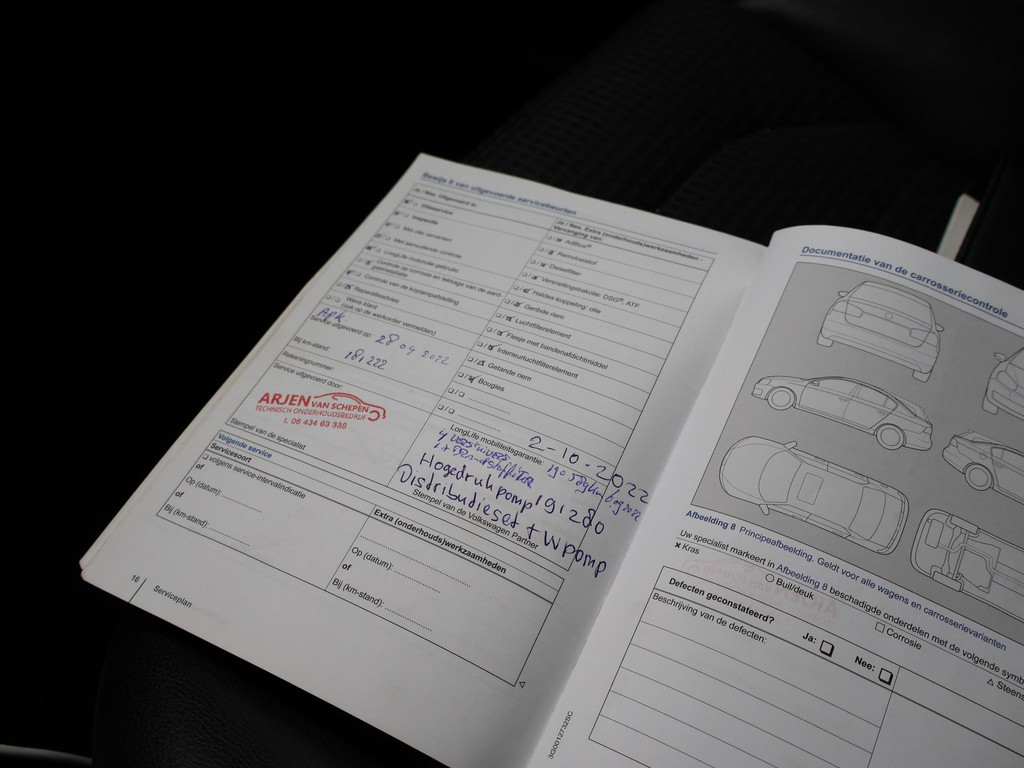 Bewijs 6 van uitgevoerde servicebeurten
Ja / Nee, Uitgevoerd is:
Olieservice
Inspectie
Met olie verversen
Met aanvullende controle
LongLife motorolie gebruikt
Controle van de koplampafstelling
Reparatieadvies
Wens klant
(ook op de werkorder vermelden)
APK
Service uitgevoerd op: 28 09 2022
Bij km-stand: 181222
Rekeningnummer:
Service uitgevoerd door:
ARJEN VAN SCHEPEN
TECHNISCH ONDERHOUDSBEDRIJF
t. 06 434 63 338
Stempel van de specialist
Ja / Nee, Extra (onderhouds)werkzaamheden -
Vervanging van:
AdBlue®
Remvloeistof
Dieselfilter
Versnellingsbakolie: DSG®, ATF
Haldex-koppeling: olie
Geribde riem
Luchtfilterelement
Flesje met bandenafdichtmiddel
Interieurluchtfilterelement
Getande riem
Bougies
LongLife mobiliteitsgarantie:
2-10-2022
Hogedrukpomp 191280
Distributieset + wpomp
Stempel van de Volkswagen Partner
Volgende service
Servicesoort
volgens service-intervalindicatie
of
Op (datum):
of
Bij (km-stand):
Extra (onderhouds)werkzaamheden
Op (datum):
of
Bij (km-stand):
16
Serviceplan
Documentatie van de carrosseriecontrole
Afbeelding 8 Principeafbeelding. Geldt voor alle wagens en carrosserievarianten
Uw specialist markeert in Afbeelding 8 beschadigde onderdelen met de volgende symb
× Kras
○ Buil/deuk
□ Corrosie
△ Steens
Defecten geconstateerd?
Ja:
Nee:
Beschrijving van de defecten:
3G0012732SC